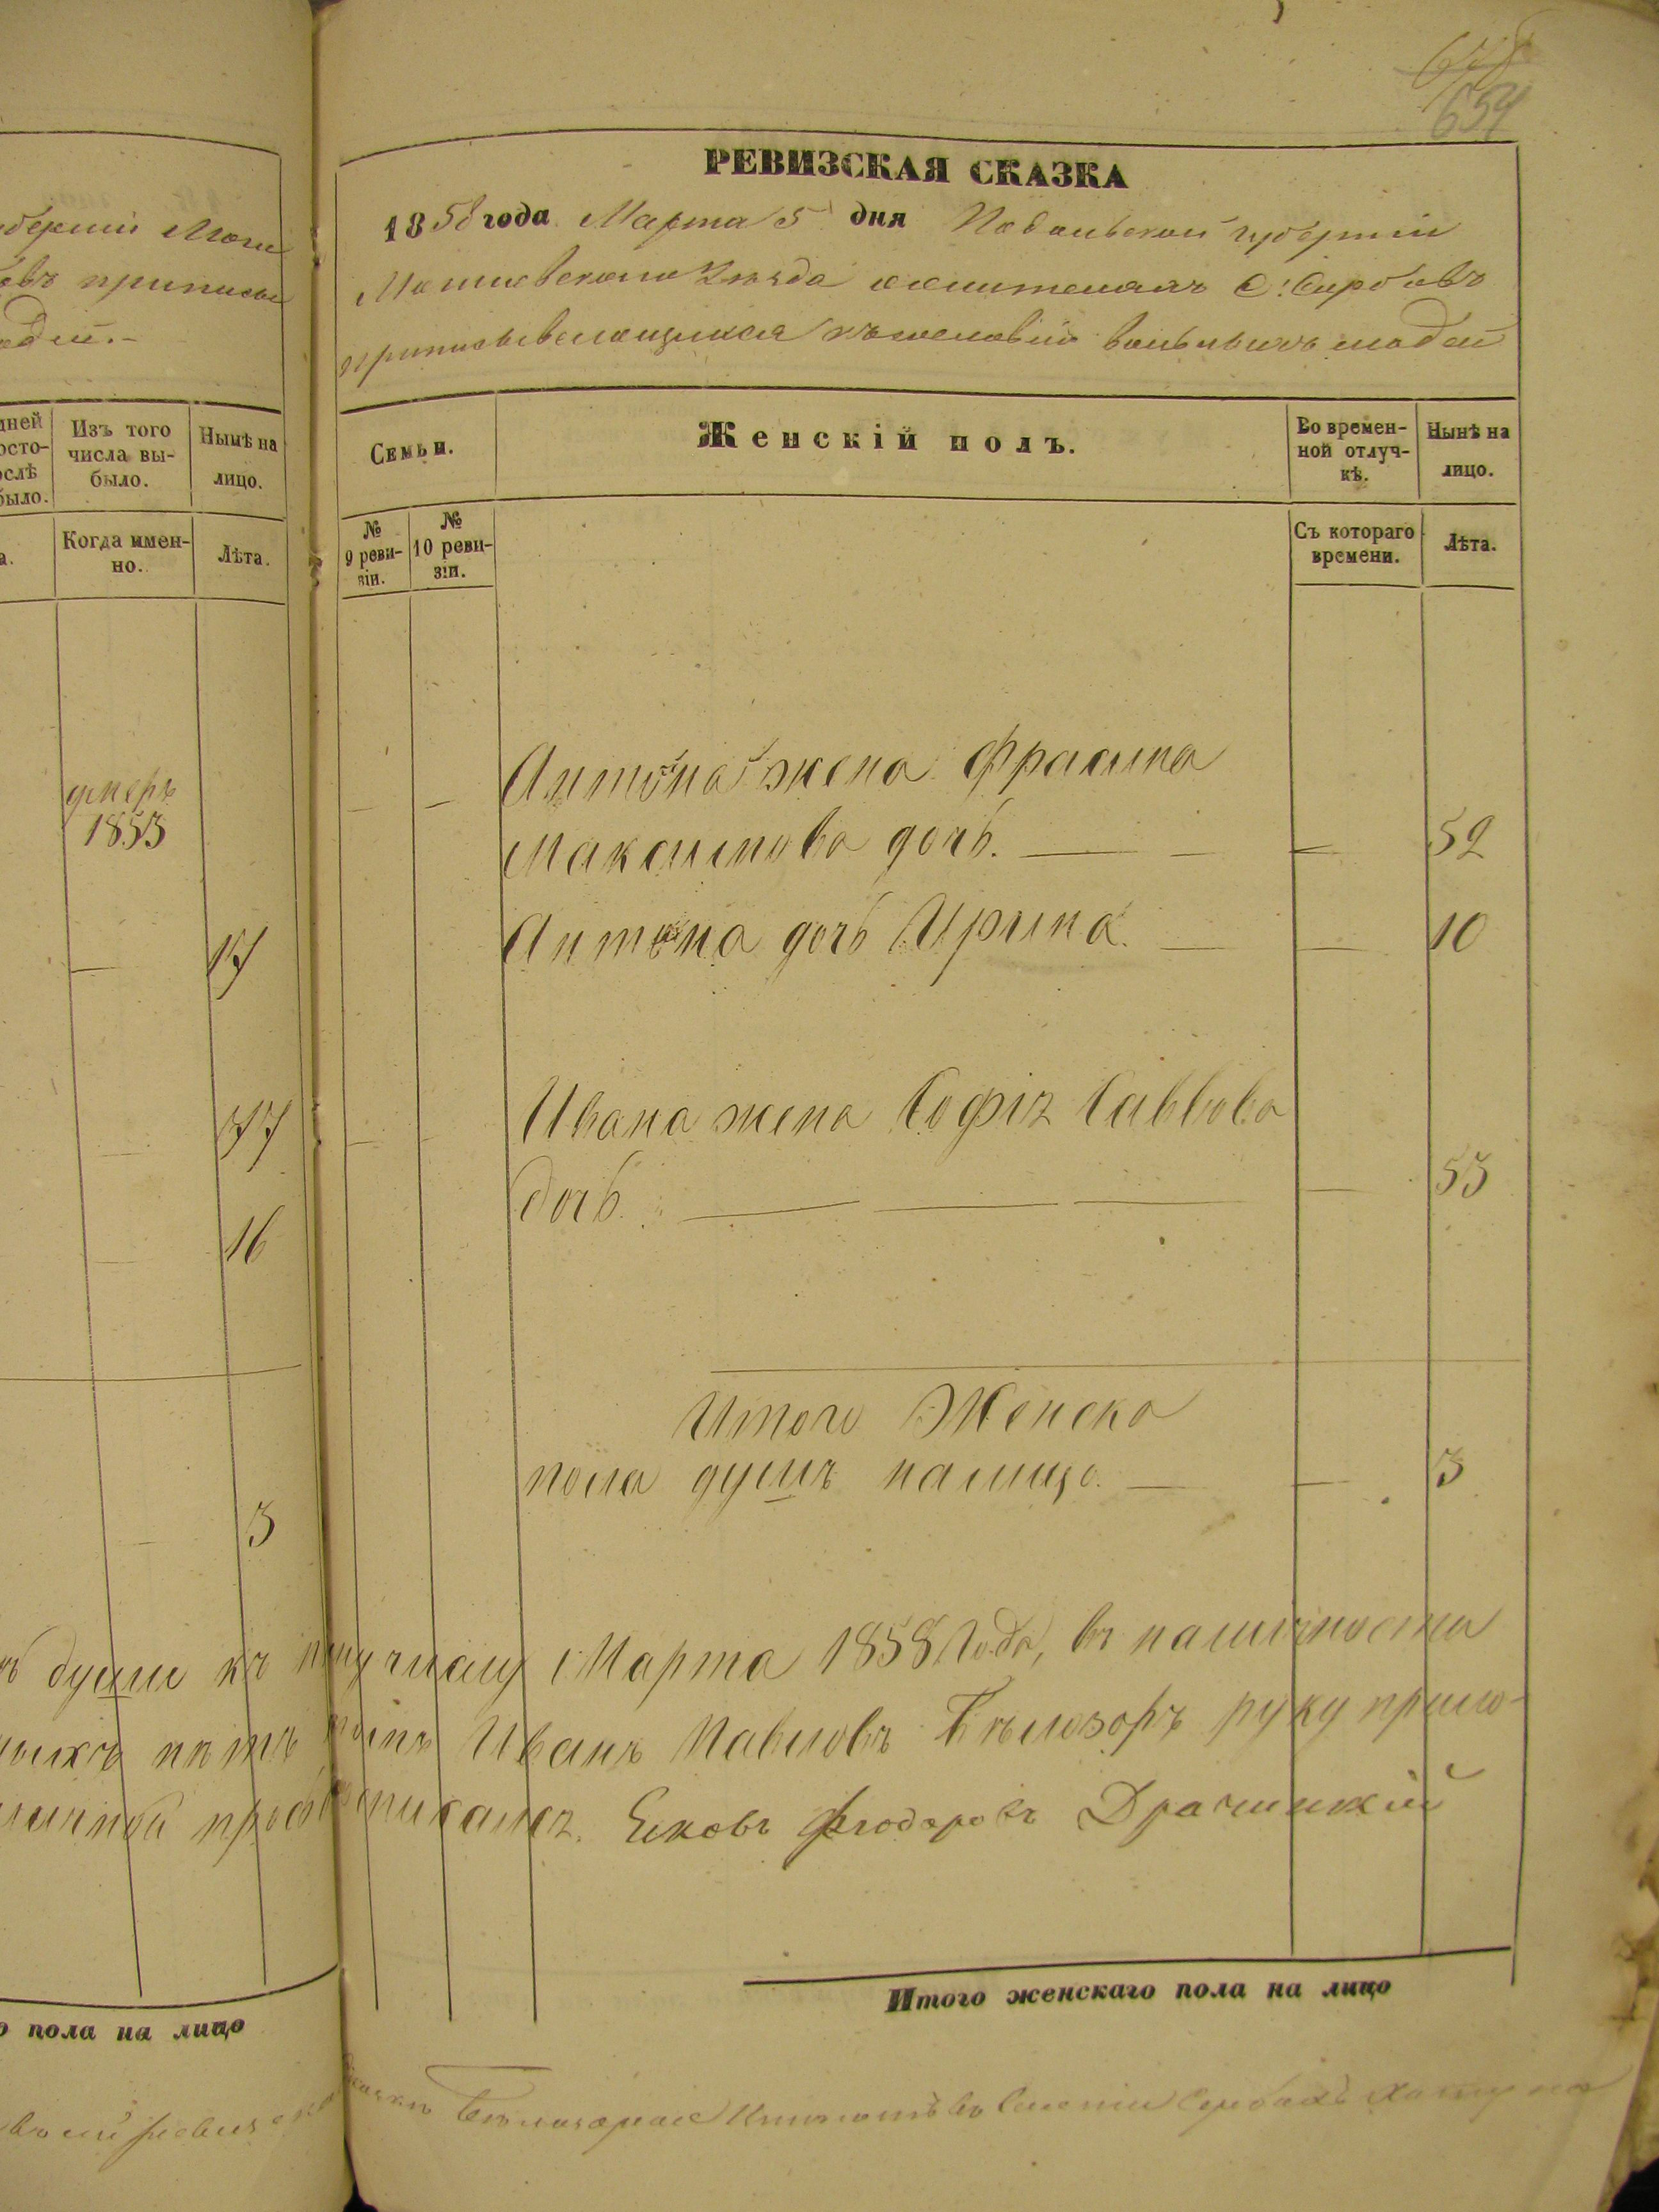 654
берніи Моги
овъ приписы
одей.-
дней
осто-
ослѣ
было.
Изъ того
числа вы-
было.
Нынѣ на
лицо.
а.
Когда имен-
но.
Лѣта.
умеръ
1853
17
16
3
о пола на лицо
РЕВИЗСКАЯ СКАЗКА
1858 года Марта 5 дня Подольской губерніи
Могилевскаго Уѣзда жителямъ С: Сербовъ
приписывающимся къ вольныхъ людей
Семьи.
Женскій полъ.
Во времен-
ной отлуч-
кѣ.
Нынѣ на
лицо.
№
9 реви-
зіи.
№
10 реви-
зіи.
Съ котораго
времени.
Лѣта.
Антона жена Фрасина
Максимова дочь. — — — 52
Антона дочь Ирина. — — 10
Ивана жена Софія Саввова
дочь. — — — — 53
Итого Женска
пола душъ налицо. — — 3
души къ Марта 1858 Года, въ наличности
нѣтъ Иванъ Павловъ Бѣлозоръ руку прило-
Яковъ Федоровъ Драчинскій
Итого женскаго пола на лицо